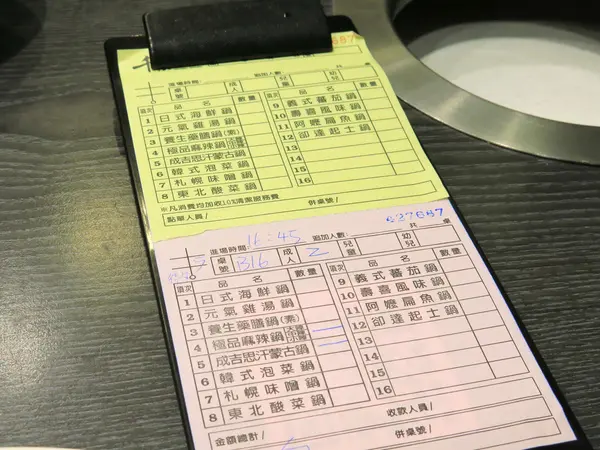 687
共 桌
進場時間: 追加人數
桌號 成人 兒童 幼兒
項次 品名 數量 項次 品名 數量
1 日式海鮮鍋 9 義式番茄鍋
2 元氣雞湯鍋 10 壽喜風味鍋
3 養生藥膳鍋(素) 11 阿嬤扁魚鍋
4 極品麻辣鍋 12 卻達起士鍋
5 成吉思汗蒙古鍋 13
6 韓式泡菜鍋 14
7 札幌味噌鍋 15
8 東北酸菜鍋 16
※凡消費均加收10%清潔服務費
點單人員/ 併桌號/
627687
進場時間: 16:45 追加人數 共 桌
桌號 B16 成人 2 兒童 幼兒
項次 品名 數量 項次 品名 數量
1 日式海鮮鍋 9 義式番茄鍋
2 元氣雞湯鍋 10 壽喜風味鍋
3 養生藥膳鍋(素) 11 阿嬤扁魚鍋
4 極品麻辣鍋 12 卻達起士鍋
5 成吉思汗蒙古鍋 13
6 韓式泡菜鍋 14
7 札幌味噌鍋 15
8 東北酸菜鍋 16
收款人員/
金額總計/ 併桌號/